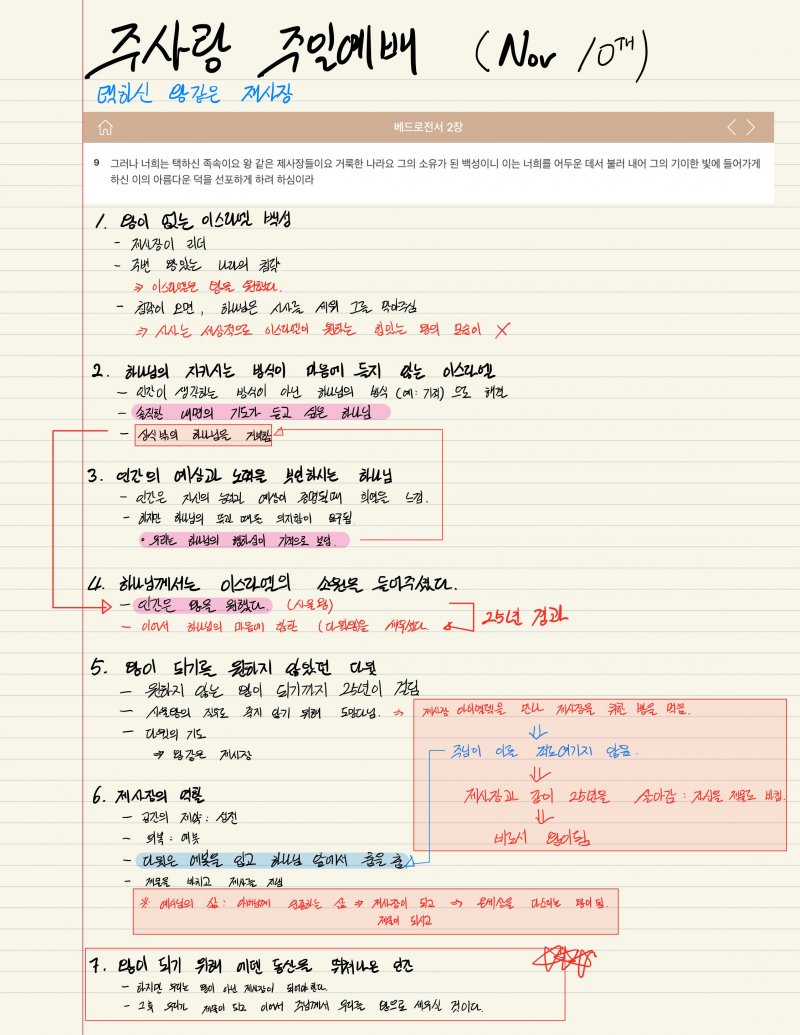 주사랑 주일예배 (Nov 10째)
택하신 왕같은 제사장
베드로전서 2장
9 그러나 너희는 택하신 족속이요 왕 같은 제사장들이요 거룩한 나라요 그의 소유가 된 백성이니 이는 너희를 어두운 데서 불러 내어 그의 기이한 빛에 들어가게
하신 이의 아름다운 덕을 선포하게 하려 하심이라
1. 왕이 없는 이스라엘 백성
- 제사장이 리더
- 주변 왕있는 나라의 침략
⇒ 이스라엘은 왕을 원했다.
- 침략이 오면, 하나님은 사사를 세워 그를 막아주심
⇒ 사사는 세상적으로 이스라엘이 원하는 힘있는 왕의 모습이 X
2. 하나님의 지키시는 방식이 마음에 들지 않는 이스라엘
- 인간이 생각하는 방식이 아닌 하나님의 방식 (예: 기적) 으로 해결
- 솔직한 내면의 기도가 듣고 싶은 하나님
- 상식밖의 하나님을 거부함
3. 인간의 예상과 노력을 부인하시는 하나님
- 인간은 자신의 능력과 예상이 증명될때 희열을 느낌.
- 하지만 하나님의 뜻과 때를 의지함이 요구됨
• 우리는 하나님의 행하심이 기적으로 보임.
4. 하나님께서는 이스라엘의 소원을 들어주셨다.
- 인간은 왕을 원했다. (사울왕)
- 이어서 하나님의 마음에 합한 (다윗왕)을 세우셨다.
25년 경과
5. 왕이 되기를 원하지 않았던 다윗
- 원하지 않는 왕이 되기까지 25년이 걸림
- 사울왕의 진노로 죽지 않기 위해 도망다님. ⇒ 제사장 아히멜렉을 만나 제사장을 위한 빵을 먹음.
- 다윗의 기도
⇒ 왕같은 제사장
주님이 이를 죄로여기지 않음.
제사장과 같이 25년을 살아감 : 자신을 제물로 바침.
비로서 왕이됨
6. 제사장의 역할
- 공간의 제약 : 성전
- 의복 : 에봇
- 다윗은 에봇을 입고 하나님 앞에서 춤을 춤
- 제물을 바치고 제사를 지냄
※ 예수님의 삶 : 아버님께 순종하는 삶 ⇒ 제사장이 되고 ⇒ 온세상을 다스리는 왕이 됨.
제물이 되시고
7. 왕이 되기 위해 에덴 동산을 뛰쳐나온 인간
- 하지만 우리는 왕이 아닌 제사장이 되어야 한다.
- 그후 우리가 제물이 되고 이어서 주님께서 우리를 왕으로 세우실 것이다.